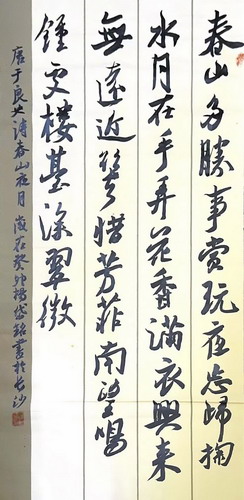 春山多勝事賞玩夜忘歸掬
水月在手弄花香滿衣興來
無遠近欲去惜芳菲南望鳴
鍾處樓臺深翠微
唐于良史詩春山夜月 歲在癸卯楊岱銘書於長沙